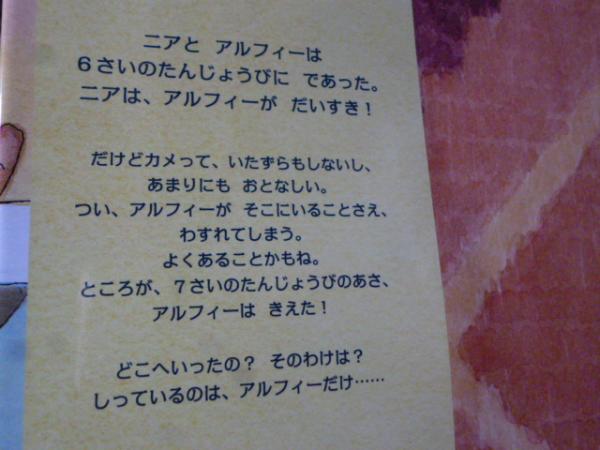 ニアと アルフィーは
6さいのたんじょうびに であった。
ニアは、アルフィーが だいすき！
だけどカメって、いたずらもしないし、
あまりにも おとなしい。
つい、アルフィーが そこにいることさえ、
わすれてしまう。
よくあることかもね。
ところが、7さいのたんじょうびのあさ、
アルフィーは きえた！
どこへいったの？ そのわけは？
しっているのは、アルフィーだけ……